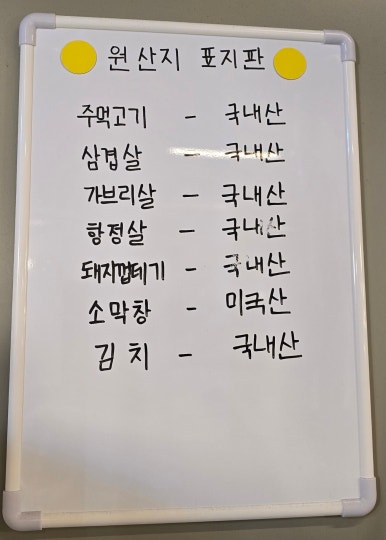 원산지 표지판
주먹고기 - 국내산
삼겹살 - 국내산
가브리살 - 국내산
항정살 - 국내산
돼지껍데기 - 국내산
소막창 - 미국산
김치 - 국내산